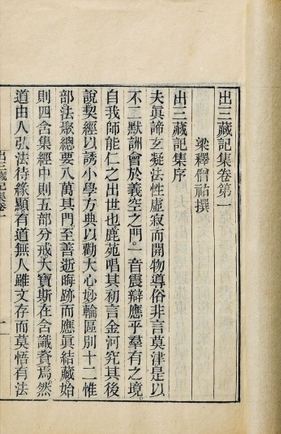 出三藏記集卷第一
梁釋僧祐撰
出三藏記集序
夫眞諦玄凝法性虛寂而開物導俗非言莫津是以
不二默詶會於義空之門一音震辯應乎羣有之境
自我師能仁之出世也鹿苑唱其初言金河究其後
說契經以誘小學方典以勸大心妙輪區別十二惟
部法聚總要八萬其門至善逝晦跡而應眞結藏始
則四含集經中則五部分戒大寶斯在含識資焉然
道由人弘法待緣顯有道無人雖文存而莫悟有法
出三藏記集卷一
一